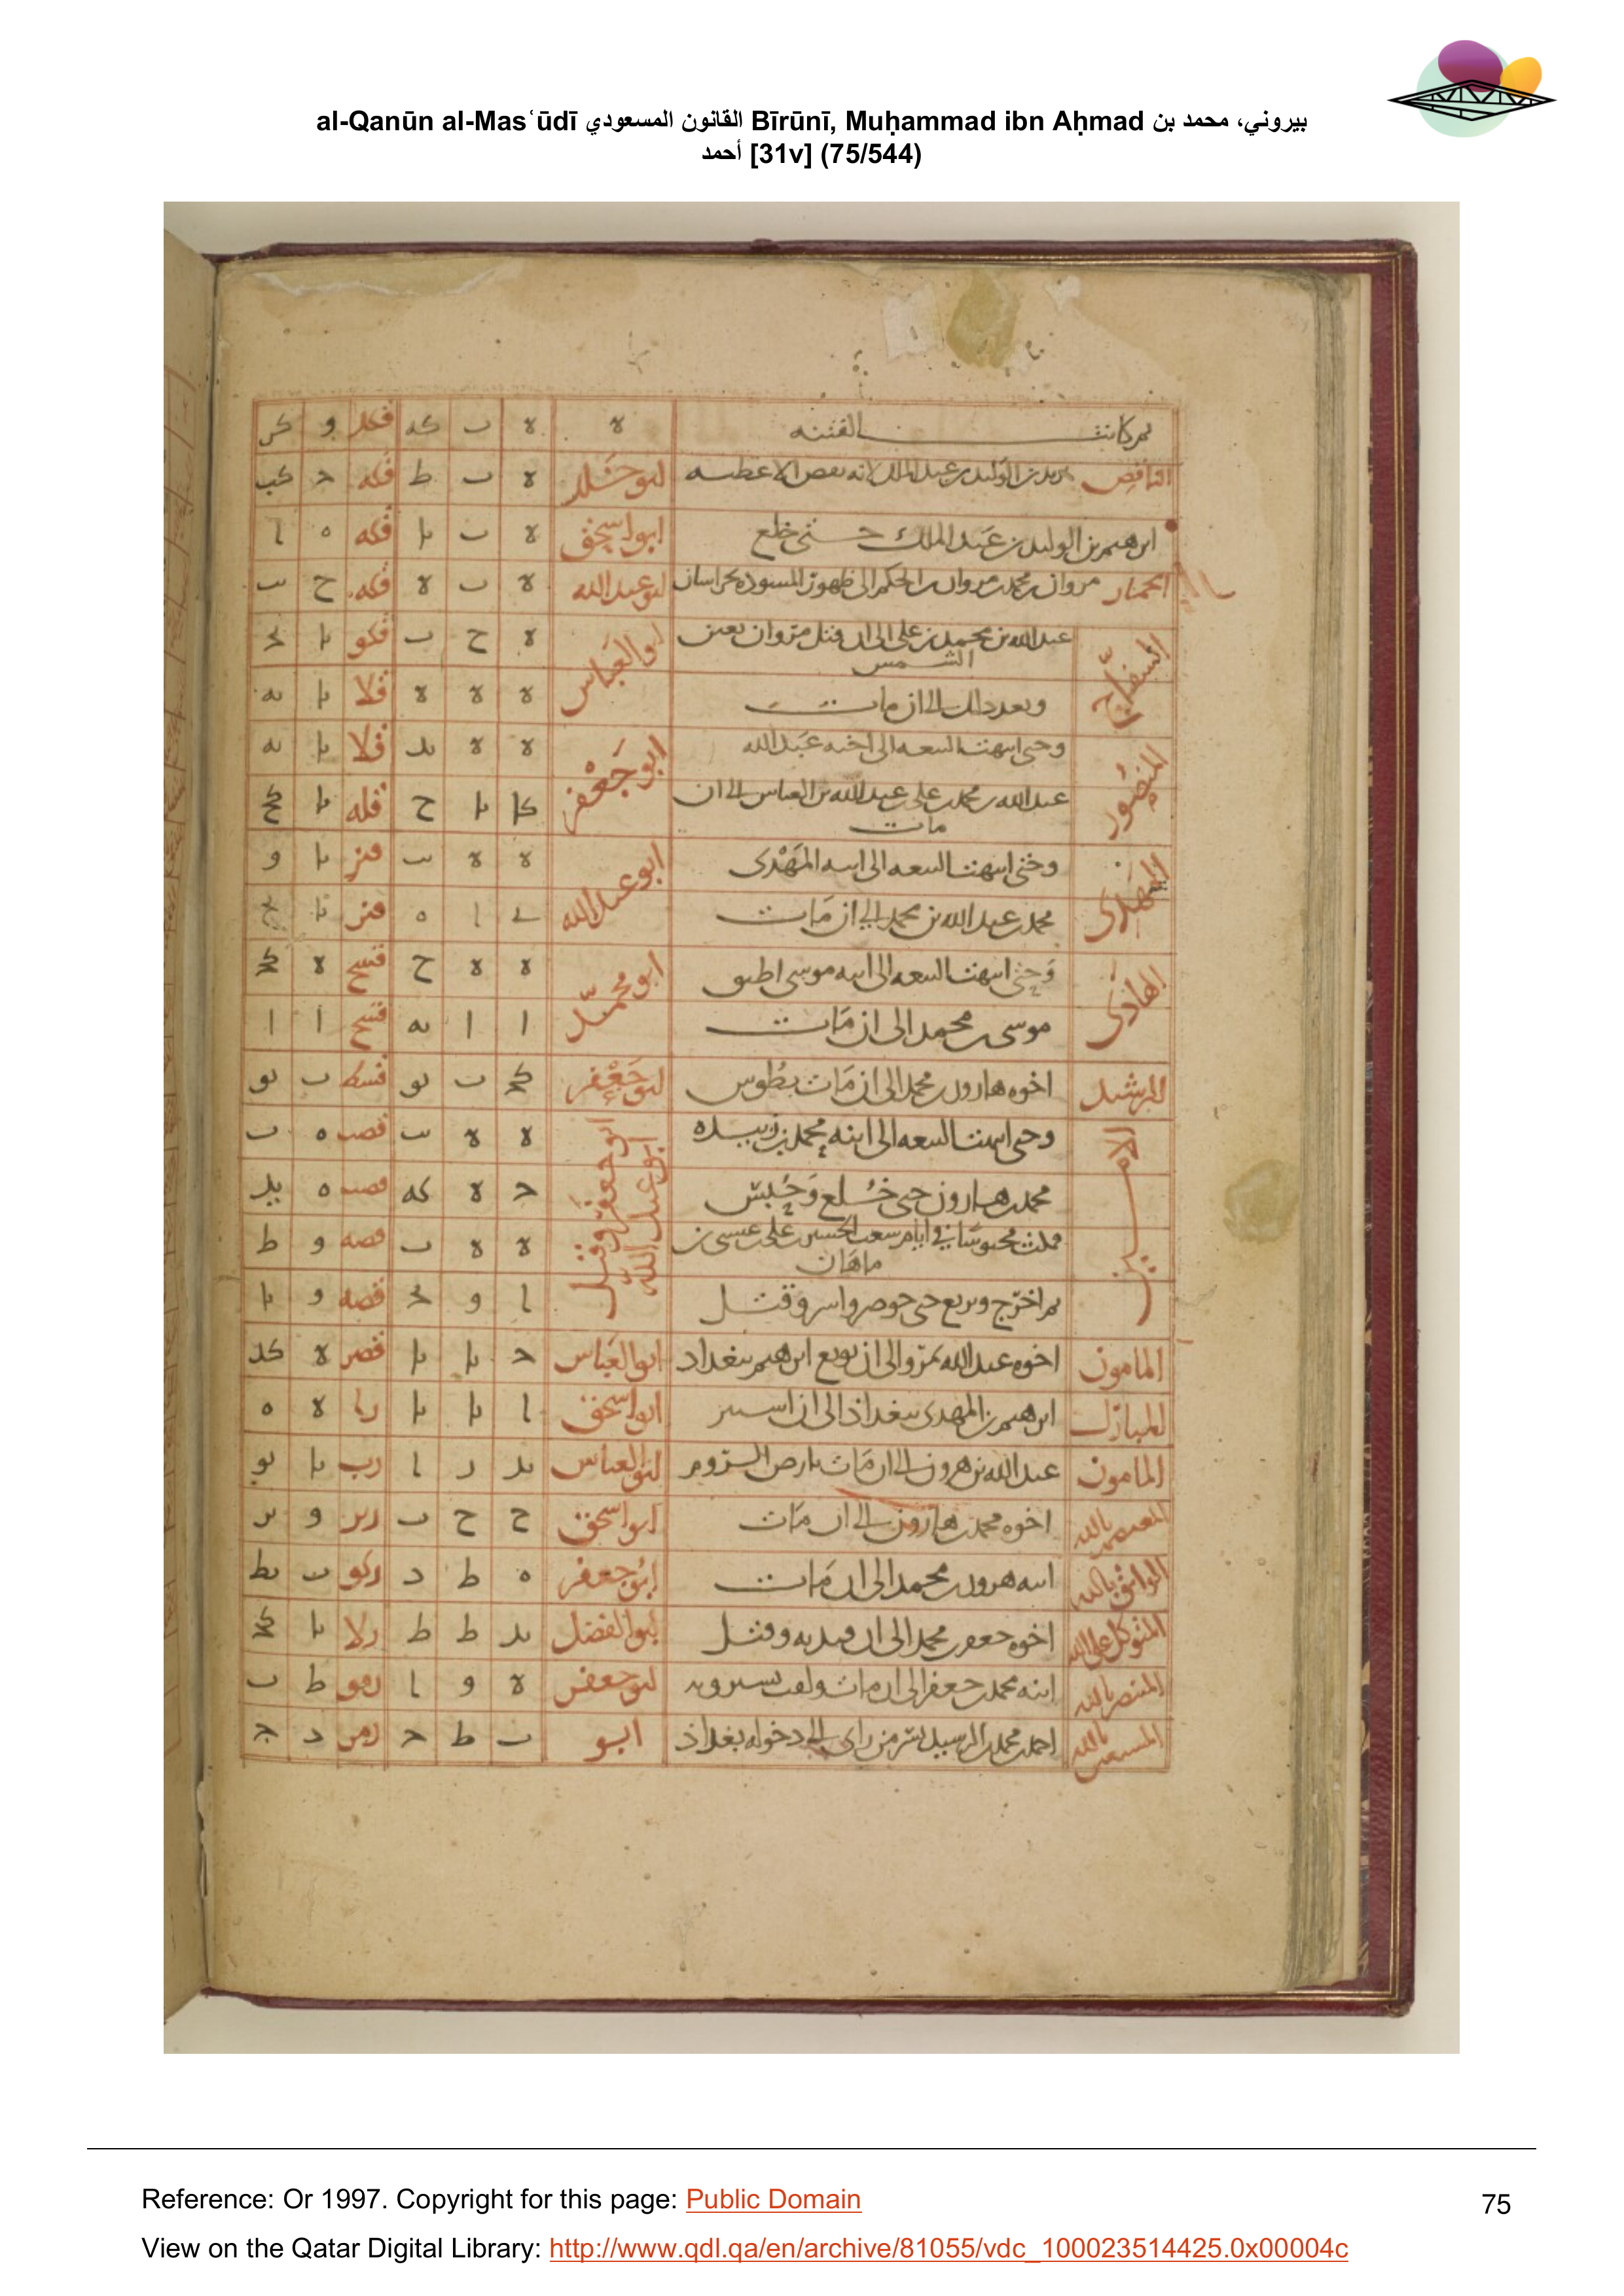 al-Qanūn al-Masʿūdī القانون المسعودي Bīrūnī, Muḥammad ibn Aḥmad بيروني، محمد بن
أحمد [31v] (75/544)
ثم كانت الفتنه لا لا ب كد فكد و كز
الناقص يزيد بن الوليد بن عبد الملك لانه نقص الاعطيه ابو خلد لا ب ط فكه ح كب
ابرهيم بن الوليد بن عبد الملك حتى خلع ابو اسحق لا ب يا فكه ه ا
الحمار مروان بن محمد بن مروان بن الحكم الى ظهور المسوده بخراسان ابو عبد الله لا ب لا فكه ح ب
السفاح عبد الله بن محمد بن علي الى ان قتل مروان بعين الشمس ابو العباس لا ح ب فكو يا
وبعد ذلك الى ان مات لا لا لا قلا يا يه
المنصور وحتى انتهت البيعه الى اخيه عبد الله ابو جعفر لا لا يد قلا يا يه
عبد الله بن محمد بن علي بن عبد الله بن العباس الى ان مات كا يا ح قله يا كح
المهدى وحتى انتهت البيعه الى ابنه المهدى ابو عبد الله لا لا يب قنز يا و
محمد بن عبد الله بن محمد الى ان مات ى ا ه قنز يا
الهادى وحتى انتهت البيعه الى ابنه موسى اطبق ابو محمد لا لا ح قسح لا كح
موسى بن محمد الى ان مات ا ا يه قسح ا ا
الرشيد اخوه هارون بن محمد الى ان مات بطوس ابو جعفر كح ب يو قسط ب يو
الامين وحتى انتهت البيعه الى ابنه محمد بن زبيده ابو جعفر وقيل ابو عبد الله لا لا يب قصب ه ب
محمد بن هارون حتى خلع وحبس ح لا كه قصب ه يد
فمكث محبوسا في ايام شعب الحسين بن علي بن عيسى بن ماهان لا لا ب قصه و ط
ثم اخرج وبويع حتى حوصر واسر وقتل ا و قصه و يا
المامون اخوه عبد الله بمرو الى ان بويع ابرهيم ببغداد ابو العباس ح يا يا قصر لا كد
المبارك ابرهيم بن المهدى ببغداذ الى ان استتر ابو اسحق ا يا يا را لا ه
المامون عبد الله بن هرون الى ان مات بارض الروم ابو العباس يد ر ا رب يا يو
المعتصم بالله اخوه محمد بن هارون الى ان مات ابو اسحق ح ح ب ريز و يز
الواثق بالله ابنه هرون بن محمد الى ان مات ابو جعفر ه ط د ركو ب يط
المتوكل على الله اخوه جعفر بن محمد الى ان وقتل ابو الفضل يد ط ط رلا يا كح
المنتصر بالله ابنه محمد بن جعفر الى ان مات ولقب بشيرويه ابو جعفر لا و ا رمو ط ب
المستعين بالله احمد بن محمد بن الرشيد بسر من راى الى دخوله بغداذ ابو ب ط ح رمز د ج
Reference: Or 1997. Copyright for this page: Public Domain
75
View on the Qatar Digital Library: http://www.qdl.qa/en/archive/81055/vdc_100023514425.0x00004c